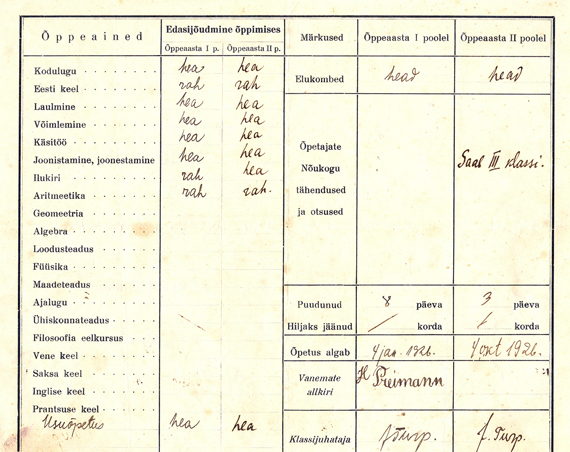 Õppeained Edasijõudmine õppimises Märkused Õppeasta I poolel Õppeasta II poolel
Õppeasta I p. Õppeasta II p.
Kodulugu hea hea
Eesti keel rah rah
Laulmine hea hea
Võimlemine hea hea
Käsitöö hea hea
Joonistamine, joonestamine hea hea
Ilukiri rah hea
Aritmeetika rah rah.
Geomeetria
Algebra
Loodusteadus
Füüsika
Maadeteadus
Ajalugu
Ühiskonnateadus
Filosoofia eelkursus
Vene keel
Saksa keel
Inglise keel
Prantsuse keel
Usuõpetus hea hea
Elukombed head head
Õpetajate
Nõukogu
tähendused
ja otsused
Saab III klassi.
Puudunud 8 päeva 3 päeva
Hiljaks jäänud / korda / korda
Õpetus algab 4 jan. 1926. 4 okt 1926.
Vanemate
allkiri
H Preimann
Klassijuhataja J Turp. J. Turp.